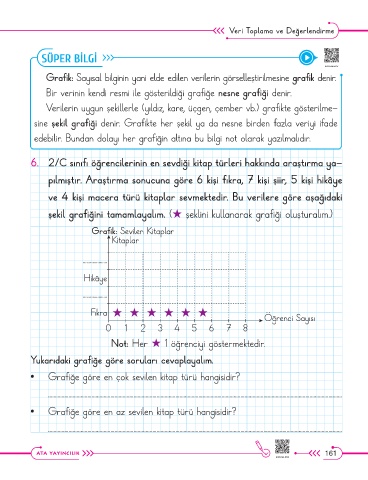 Veri Toplama ve Değerlendirme
SÜPER BİLGİ
Grafik: Sayısal bilginin yani elde edilen verilerin görselleştirilmesine grafik denir.
Bir verinin kendi resmi ile gösterildiği grafiğe nesne grafiği denir.
Verilerin uygun şekillerle (yıldız, kare, üçgen, çember vb.) grafikte gösterilme-
sine şekil grafiği denir. Grafikte her şekil ya da nesne birden fazla veriyi ifade
edebilir. Bundan dolayı her grafiğin altına bu bilgi not olarak yazılmalıdır.
6. 2/C sınıfı öğrencilerinin en sevdiği kitap türleri hakkında araştırma ya-
pılmıştır. Araştırma sonucuna göre 6 kişi fıkra, 7 kişi şiir, 5 kişi hikâye
ve 4 kişi macera türü kitaplar sevmektedir. Bu verilere göre aşağıdaki
şekil grafiğini tamamlayalım. (★ şeklini kullanarak grafiği oluşturalım.)
Grafik: Sevilen Kitaplar
Kitaplar
Hikâye
Fıkra ★ ★ ★ ★ ★ ★
Öğrenci Sayısı
0 1 2 3 4 5 6 7 8
Not: Her ★ 1 öğrenciyi göstermektedir.
Yukarıdaki grafiğe göre soruları cevaplayalım.
• Grafiğe göre en çok sevilen kitap türü hangisidir?
• Grafiğe göre en az sevilen kitap türü hangisidir?
ATA YAYINCILIK
161